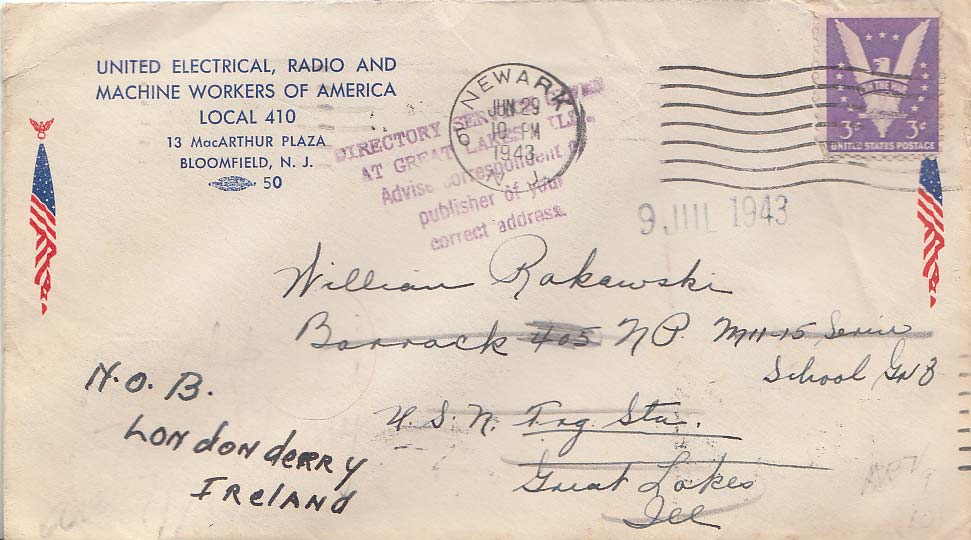 UNITED ELECTRICAL, RADIO AND
MACHINE WORKERS OF AMERICA
LOCAL 410
13 MacARTHUR PLAZA
BLOOMFIELD, N. J.
50
NEWARK
JUN 29
10 PM
1943
N. J.
3¢ 3¢
UNITED STATES POSTAGE
DIRECTORY SERVICE GIVEN
AT GREAT LAKES, ILL.
Advise correspondent or
publisher of your
correct address.
9 JUL 1943
William Rakowski
Barrack 405 N.P. M11-15 Service
School Gr 8
U. S. N. Trg. Sta.
Great Lakes
Ill
N.O.B.
LONDONDERRY
IRELAND